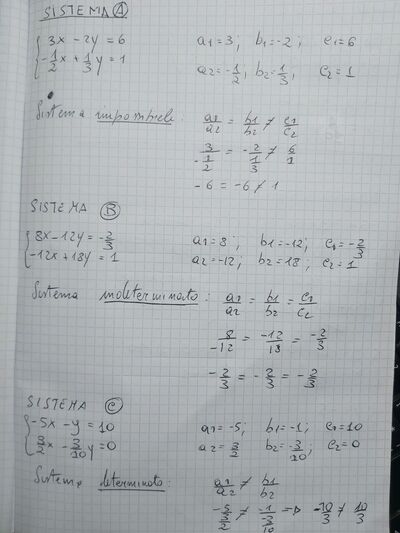 SISTEMA A
3x - 2y = 6 a1 = 3; b1 = -2; c1 = 6
-1/2 x + 1/3 y = 1 a2 = -1/2; b2 = 1/3; c2 = 1
Sistema impossibile: a1/a2 = b1/b2 ≠ c1/c2
3/-1/2 = -2/1/3 ≠ 6/1
-6 = -6 ≠ 1
SISTEMA B
8x - 12y = -2/3 a1 = 8; b1 = -12; c1 = -2/3
-12x + 18y = 1 a2 = -12; b2 = 18; c2 = 1
Sistema indeterminato: a1/a2 = b1/b2 = c1/c2
8/-12 = -12/18 = -2/3
-2/3 = -2/3 = -2/3
SISTEMA C
-5x - y = 10 a1 = -5; b1 = -1; c1 = 10
3/2 x - 3/10 y = 0 a2 = 3/2; b2 = -3/10; c2 = 0
Sistema determinato: a1/a2 ≠ b1/b2
-5/3/2 ≠ -1/-3/10 => -10/3 ≠ 10/3